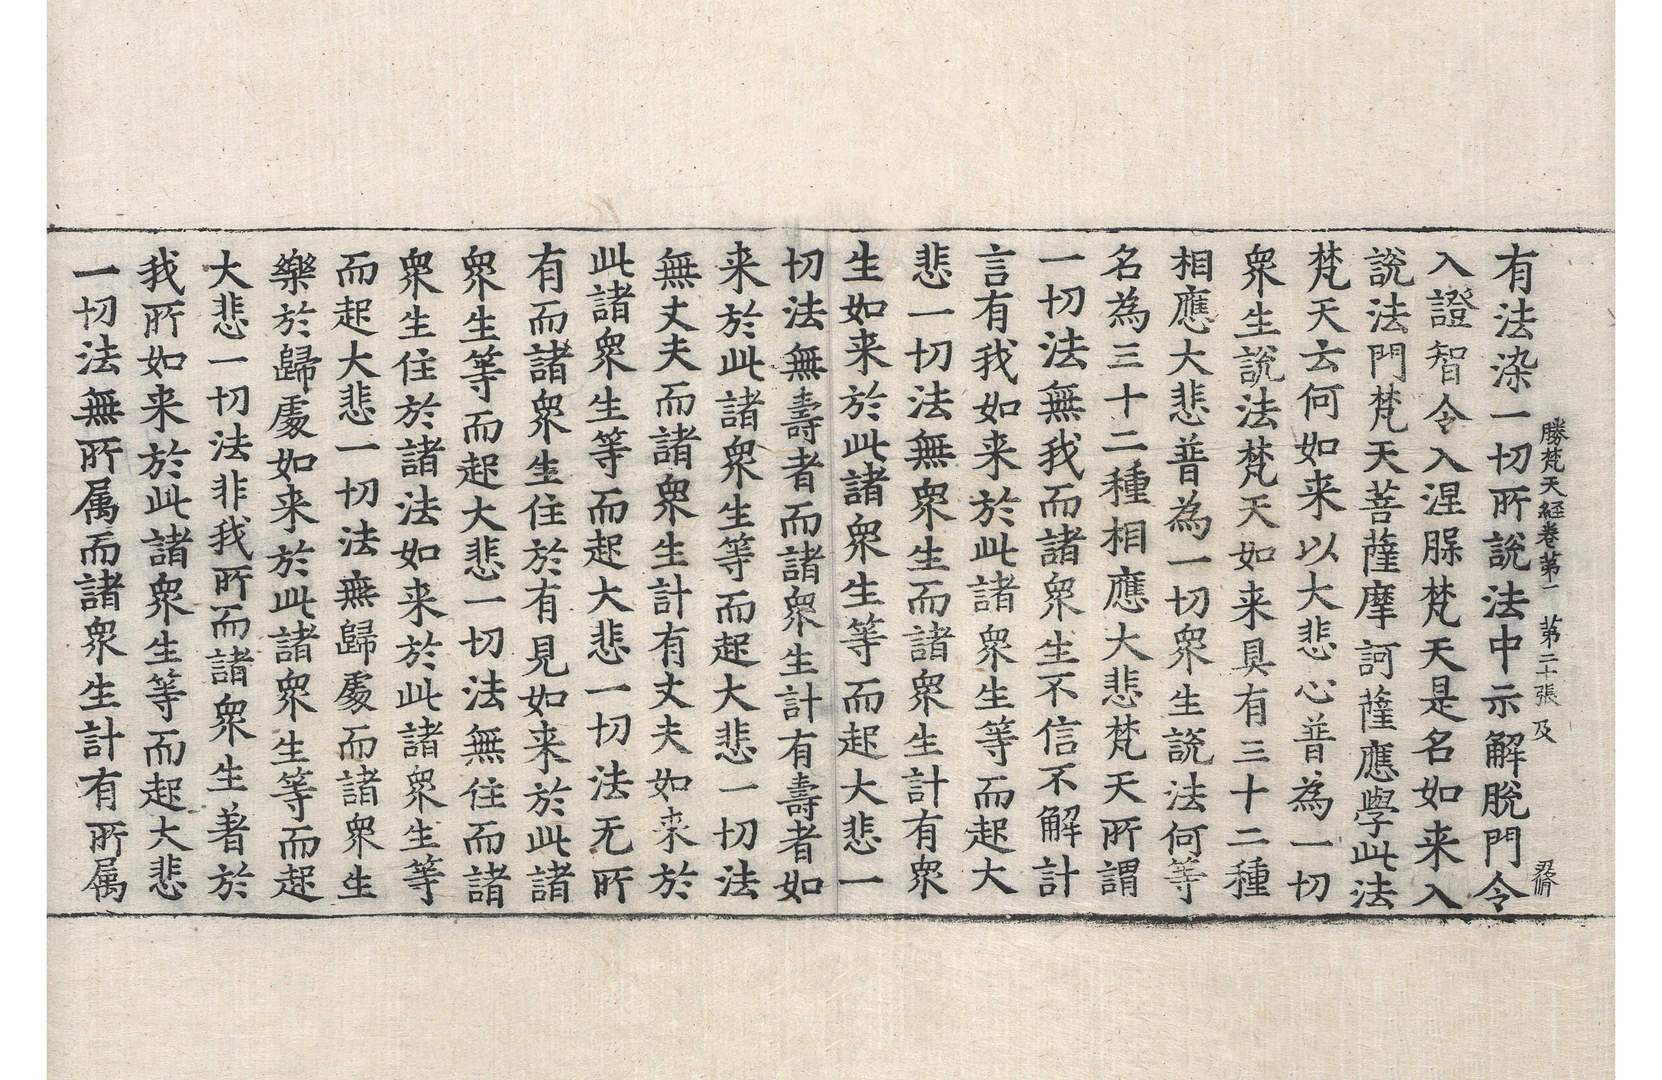 勝梵天経巻第一 第二十張 及
有法染一切所說法中示解脫門令
入證智令入涅槃梵天是名如来入
說法門梵天菩薩摩訶薩應學此法
梵天云何如来以大悲心普為一切
衆生說法梵天如来具有三十二種
相應大悲普為一切衆生說法何等
名為三十二種相應大悲梵天所謂
一切法無我而諸衆生不信不解計
言有我如来於此諸衆生等而起大
悲一切法無衆生而諸衆生計有衆
生如来於此諸衆生等而起大悲一
切法無壽者而諸衆生計有壽者如
来於此諸衆生等而起大悲一切法
無丈夫而諸衆生計有丈夫如来於
此諸衆生等而起大悲一切法无所
有而諸衆生住於有見如来於此諸
衆生等而起大悲一切法無住而諸
衆生住於諸法如来於此諸衆生等
而起大悲一切法無歸處而諸衆生
樂於歸處如来於此諸衆生等而起
大悲一切法非我所而諸衆生著於
我所如来於此諸衆生等而起大悲
一切法無所属而諸衆生計有所属